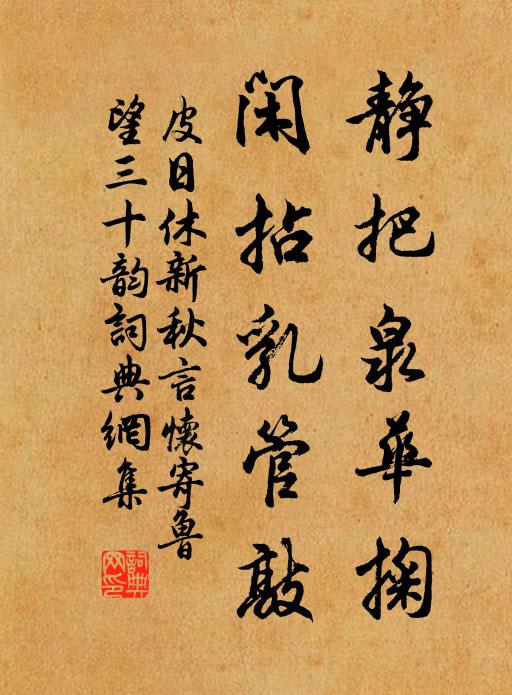 静把泉华掬
闲拈乳管敲
皮日休新秋言懷寄魯
望三十韵詞典網集
詞典
网印